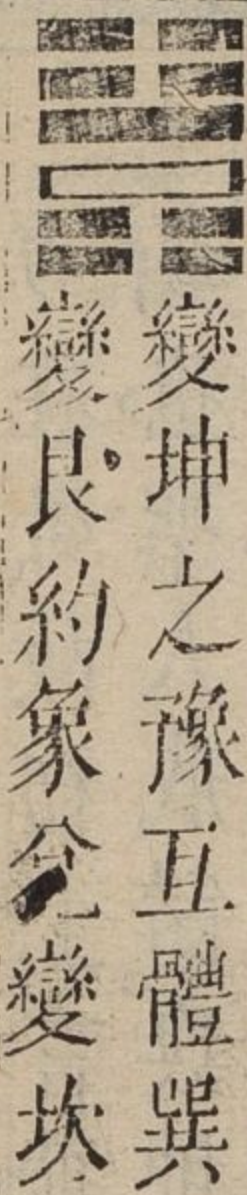 變坤之豫互體巽
變艮約象兌變坎